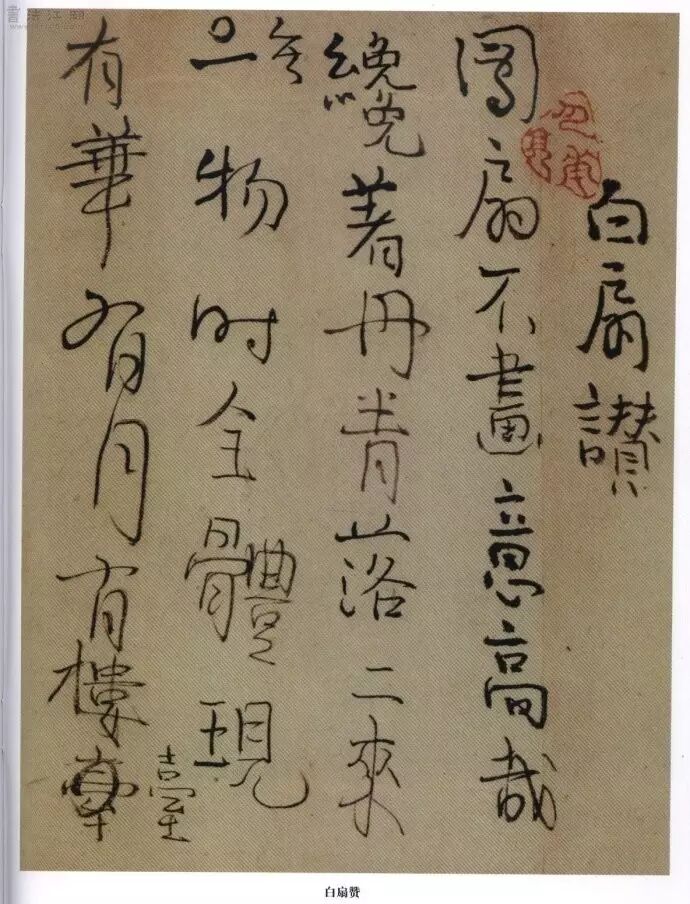 書法江湖
白扇讃
團扇不畫意高哉
纔著丹青落二來
無一物時全體現
有華有月有樓臺
白扇赞